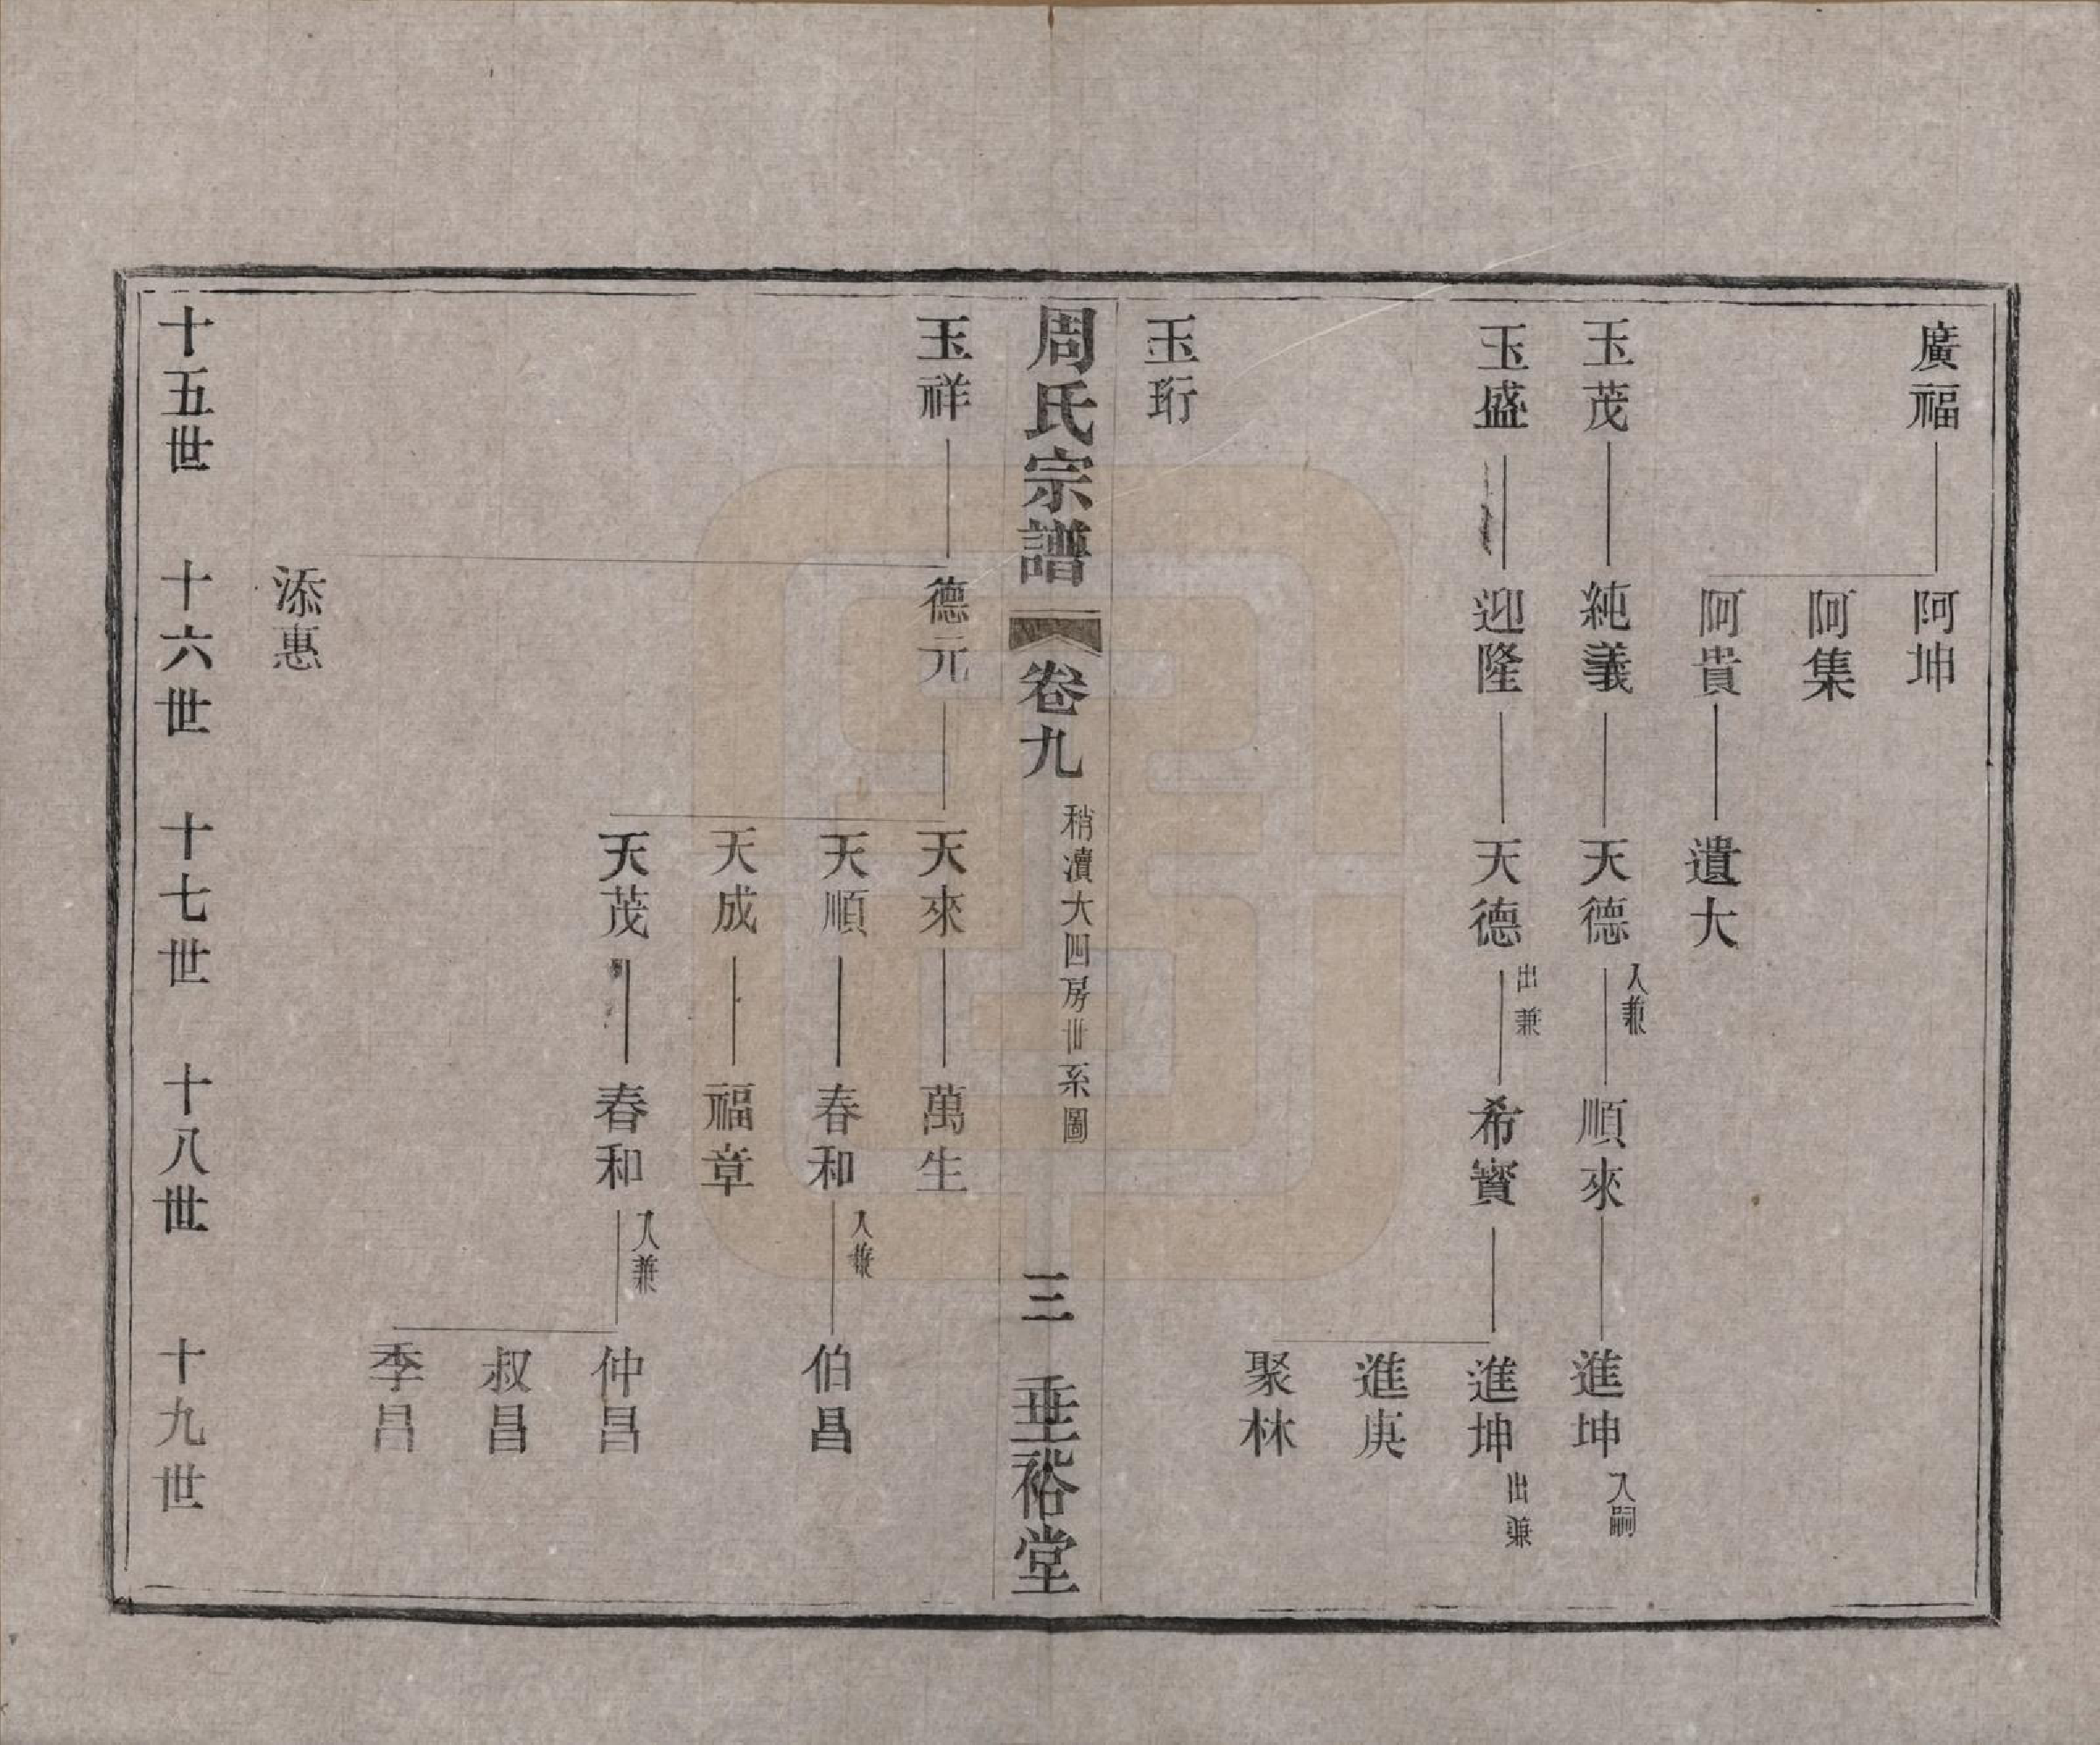 廣福
阿坤
阿集
阿貴
遺大
玉茂
純義
天德
入兼
順來
進坤
入嗣
玉盛
迎隆
天德
出兼
希寶
進坤
出兼
進庚
聚林
玉珩
周氏宗譜
卷九
稍瀆大四房世系圖
三
垂裕堂
玉祥
德元
天來
萬生
天順
春和
入兼
伯昌
天成
福章
天茂
春和
入兼
仲昌
叔昌
季昌
添惠
十五世
十六世
十七世
十八世
十九世